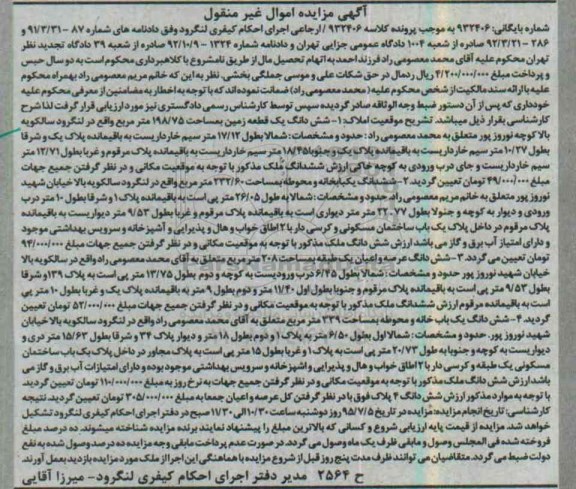 آگهی مزایده اموال غیر منقول
شماره بایگانی: ۹۳۲۴۰۶ به موجب پرونده کلاسه ۹۳۲۴۰۶ / ارجاعی اجرای احکام کیفری لنگرود وفق دادنامه های شماره ۸۷ - ۹۱/۳/۳۱ و
۲۸۶ - ۹۲/۳/۲۱ صادره از شعبه ۱۰۰۳ دادگاه عمومی جزایی تهران و دادنامه شماره ۱۳۲۴ - ۹۲/۱۰/۹ صادره از شعبه ۳۹ دادگاه تجدید نظر
تهران محکوم علیه آقای محمد معصومی راد فرزند احمد به اتهام تحصیل مال از طریق نامشروع با کلاهبرداری محکوم است به دو سال حبس
و پرداخت مبلغ ۴/۲۰۰/۰۰۰/۰۰۰ ریال ردمال در حق شکات علی و موسی جملگی بخشی. نظر به این که خانم مریم معصومی راد بهمراه محکوم
علیه با ارائه سند مالکیت از شخص محکوم علیه ( محمد معصومی راد) ضمانت نموده‌اند که با توجه به اخطار به ضامنین از معرفی محکوم علیه
خودداری که پس از آن دستور ضبط وجه الوثاقه صادر گردیده سپس توسط کارشناس رسمی دادگستری نیز مورد ارزیابی قرار گرفت لذا شرح
کارشناسی بقرار ذیل میباشد. تشریح موقعیت املاک: ۱- شش دانگ یک قطعه زمین بمساحت ۱۹۸/۷۵ متر مربع واقع در لنگرود سالکویه
بالا کوچه نوروز پور متعلق به محمد معصومی راد : حدود و مشخصات: شمالا بطول ۱۷/۱۲ متر سیم خاردار یست به باقیمانده پلاک یک و شرقا
بطول ۱۰/۳۷ متر سیم خاردار یست به باقیمانده پلاک یک و جنوبا ۱۸/۴۵ سیم خاردار یست به باقیمانده پلاک مرقوم و غربا بطول ۱۲/۷۱ متر
سیم خاردار یست و جای درب ورودی به کوچه خاکی ارزش ششدانگ ملک مذکور با توجه به موقعیت مکانی و در نظر گرفتن جمیع جهات
مبلغ ۴۹/۰۰۰/۰۰۰ تومان تعیین گردید ۲- ششدانگ یکبابخانه و محوطه بمساحت ۲۳۲/۶۰ متر مربع واقع در لنگرود سالکویه بالا خیابان شهید
نوروز پور متعلق به خانم مریم معصومی راد. حدود و مشخصات: شمالا به طول ۲۶/۰۵ متر پی است به باقیمانده پلاک ۱ و شرقا بطول ۱۰ متر درب
ورودی و دیوار به کوچه و جنوبا بطول ۲۲/۰۷ متر متر دیواری است به باقیمانده پلاک مرقوم و غربا بطول ۹/۵۳ متر دیواریست به باقیمانده
پلاک مرقوم در داخل پلاک یک باب ساختمان مسکونی و کرسی دار با ۲ اطاق خواب و هال و پذیرایی و آشپزخانه و سرویس بهداشتی موجود
و دارای امتیاز آب برق و گاز می باشد ارزش شش دانگ ملک مذکور با توجه به موقعیت مکانی و در نظر گرفتن جمیع جهات مبلغ ۹۴/۰۰۰/۰۰۰
تومان تعیین می گردد. ۳-شش دانگ عرصه و اعیان یک طبقه بمساحت ۲۰۸ متر مربع متعلق به آقای محمد معصومی راد واقع در سالکویه بالا
خیابان شهید نوروز پور حدود و مشخصات: شمالا بطول ۶/۴۵ درب ورودیست به کوچه و دوم بطول ۱۳/۷۵ متر پی است به پلاک ۱۳۹ و شرقا
بطول ۹/۵۳ متر پی است به باقیمانده پلاک مرقوم و جنوبا بطول اول ۱۱/۴۰ متر و دوم بطول ۹ متر به باقیمانده پلاک یک و غربا بطول ۱۰ متر پی
است به باقیمانده پلاک مرقوم ارزش ششدانگ ملک مذکور با توجه به موقعیت مکانی و در نظر گرفتن جمیع جهات مبلغ ۵۲/۰۰۰/۰۰۰ تومان تعیین
گردید. ۴- شش دانگ یک باب خانه و محوطه بمساحت ۳۳۹ متر مربع متعلق به آقای محمد معصومی راد واقع در لنگرود سالکویه بالا خیابان
شهید نوروز پور. حدود و مشخصات : شمالا اول بطول ۶/۵۰ متر به پلاک ۱ و دوم بطول ۱۸ متر و دیوار پلاک ۳۴ و شرقا بطول ۱۵/۶۳ متر دری و
دیواریست به کوچه و جنوبا به طول ۲۰/۷۳ متر پی است به پلاک ۱ و غربا بطول ۱۵ متر پی است به پلاک مجاور در داخل پلاک یک باب ساختمان
مسکونی یک طبقه و کرسی دار با ۲ اطاق خواب و هال و پذیرایی و اشپزخانه و سرویس بهداشتی موجود بوده و دارای امتیازات آب برق و گاز می
باشد ارزش شش دانگ ملک مذکور با توجه به موقعیت مکانی و در نظر گرفتن جمیع جهات به نرخ روز به مبلغ ۱۱۰/۰۰۰/۰۰۰ تومان تعیین گردید.
با توجه به موارد مذکور ارزش شش دانگ ۴ پلاک فوق با در نظر گرفتن کل عرصه و اعیان جمعا به مبلغ ۳۰۵/۰۰۰/۰۰۰ تومان تعیین گردید. نتیجه
کارشناسی: تاریخ انجام مزایده: مزایده در تاریخ ۹۵/۷/۵ روز دوشنبه ساعت ۱۰/۳۰ الی ۱۱/۳۰ صبح در دفتر اجرای احکام کیفری لنگرود تشکیل
خواهد شد. مزایده از قیمت پایه ارزیابی شروع و کسانی که بالاترین مبلغ را پیشنهاد نمایند برنده مزایده شناخته میشوند. ده درصد مبلغ
فروخته شده فی المجلس وصول و مابقی ظرف یک ماه وصول می گردد. در صورت عدم پرداخت مابقی وجه مزایده ده درصد وصول شده به نفع
دولت ضبط می گردد. متقاضیان می توانند ظرف مدت پنج روز قبل از شروع مزایده با هماهنگی این اجرا از ملک مورد مزایده بازدید بعمل آورند.
ح ۲۵۶۴ مدیر دفتر اجرای احکام کیفری لنگرود- میرزا آقایی